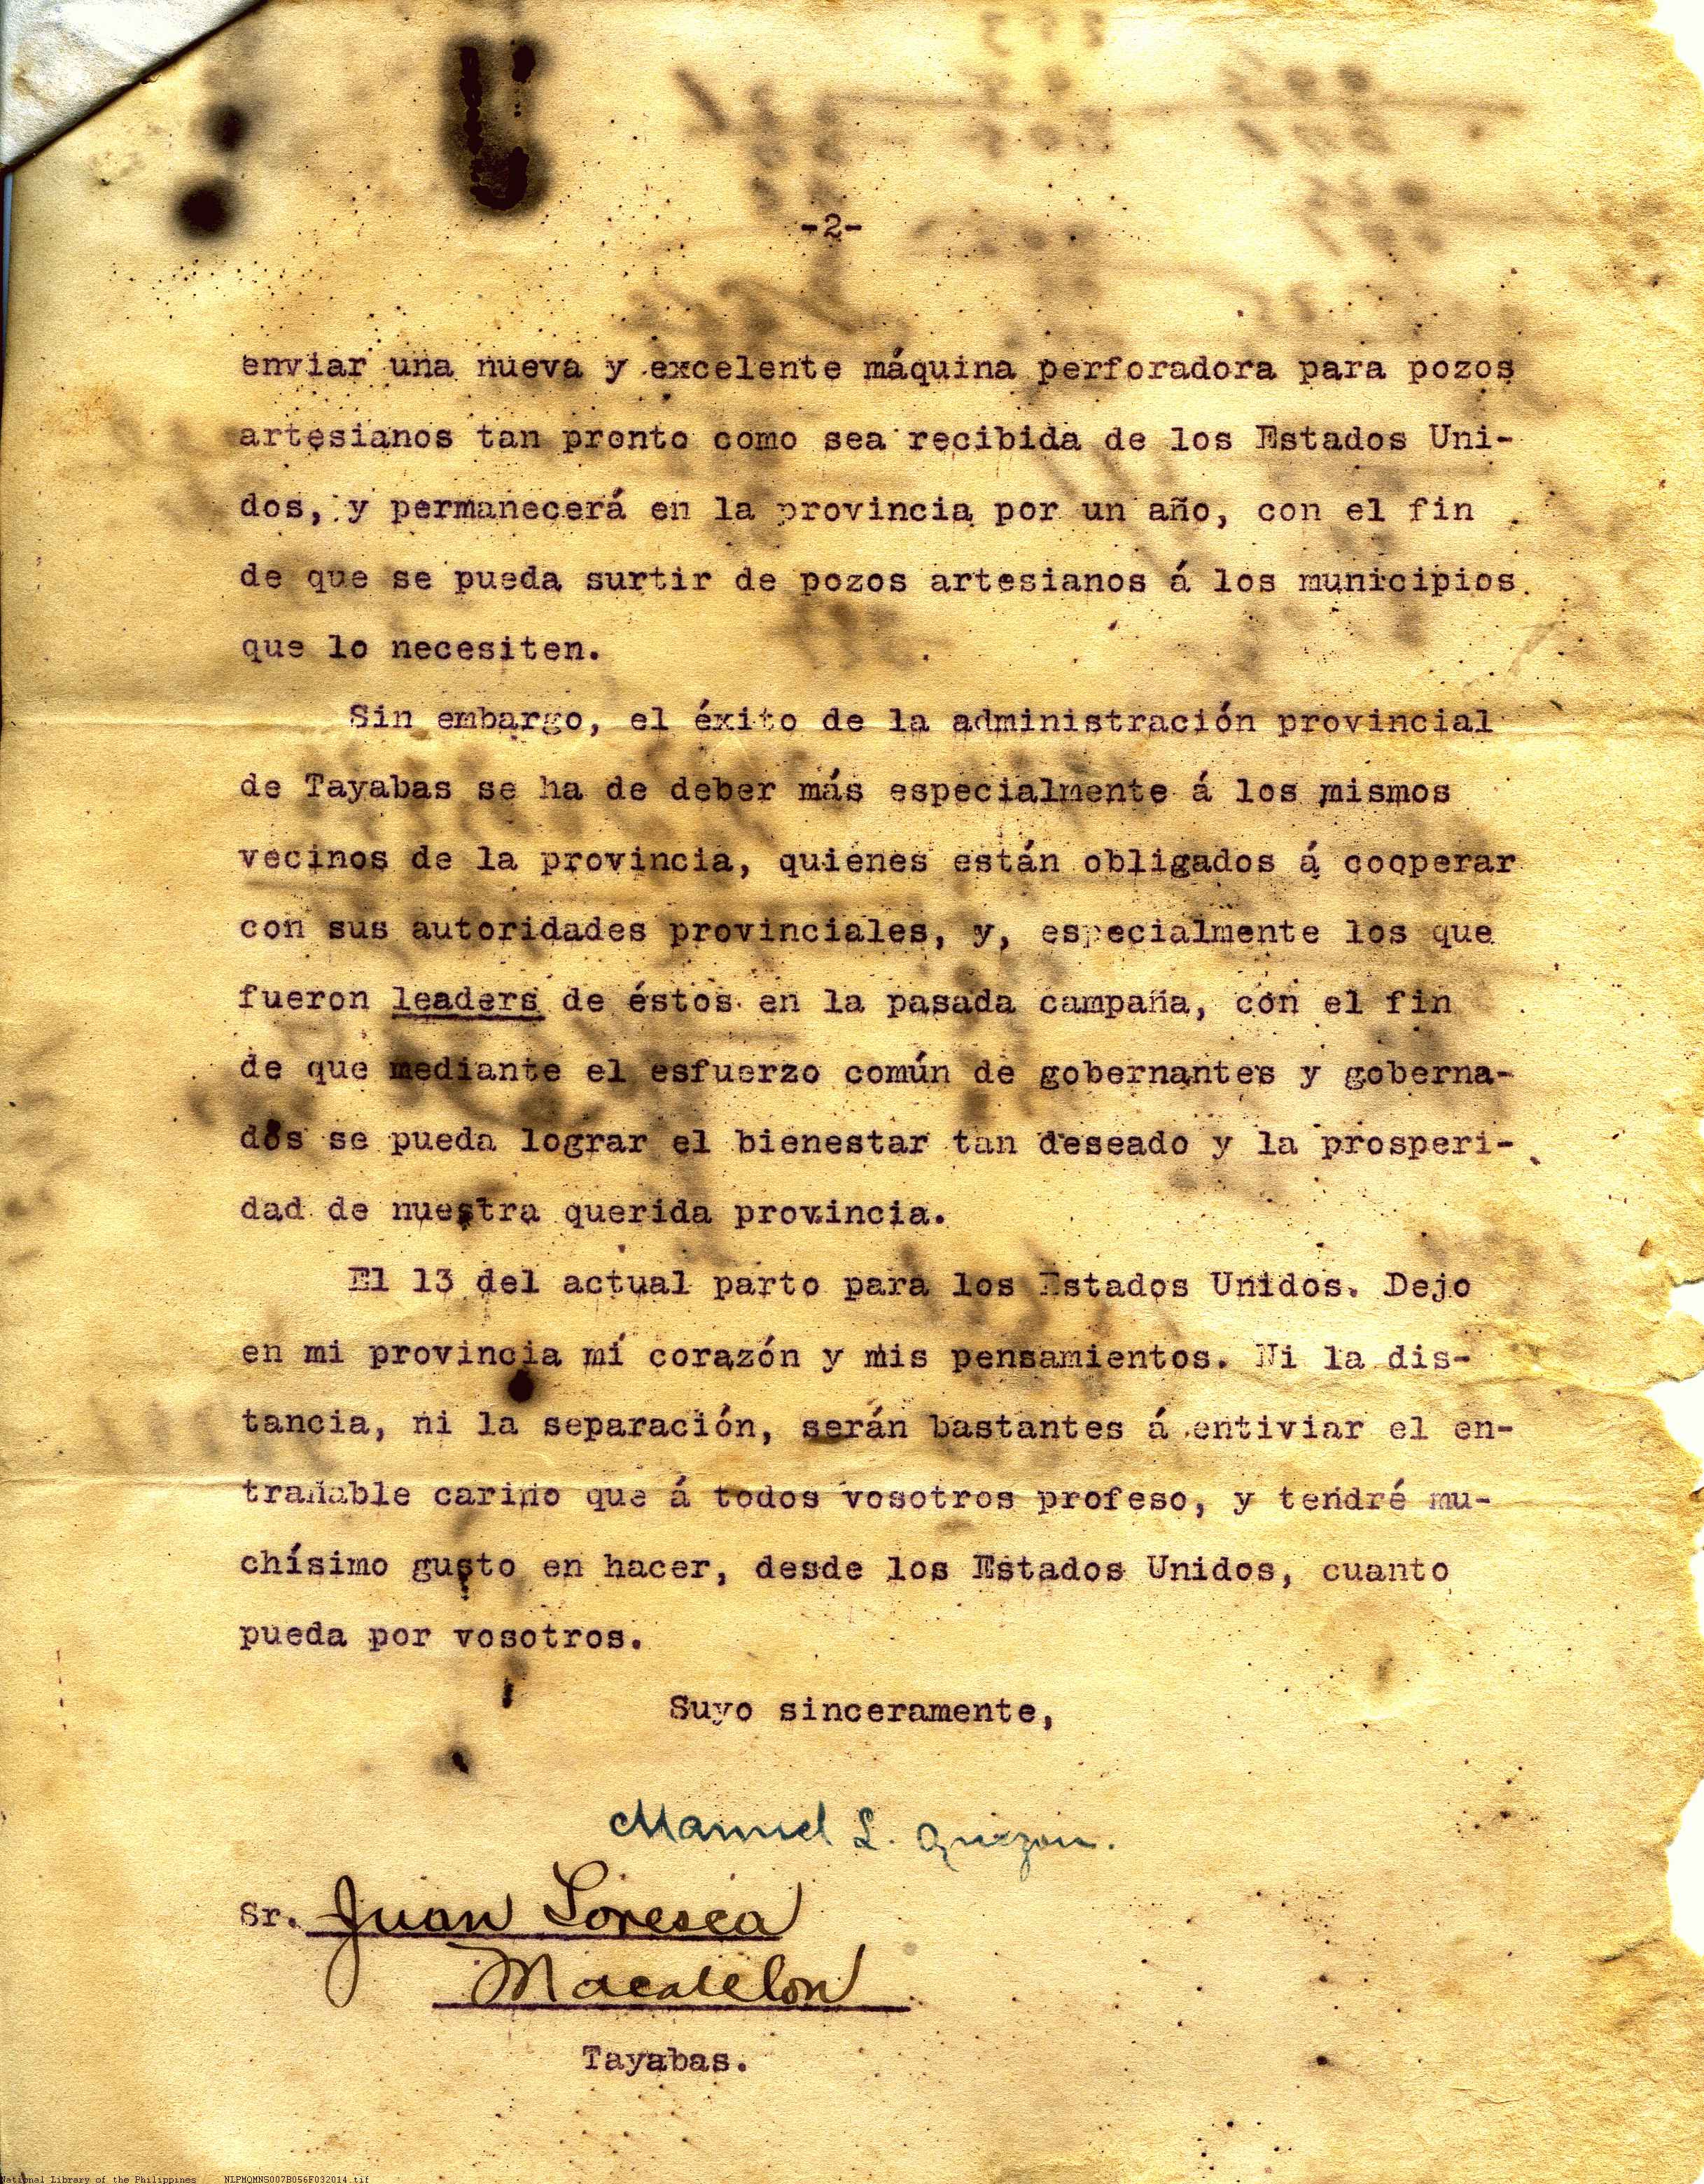 -2-
enviar una nueva y excelente máquina perforadora para pozos
artesianos tan pronto como sea recibida de los Estados Uni-
dos, y permanecerá en la provincia por un año, con el fin
de que se pueda surtir de pozos artesianos á los municipios
que lo necesiten.
Sin embargo, el éxito de la administración provincial
de Tayabas se ha de deber más especialmente á los mismos
vecinos de la provincia, quienes están obligados á cooperar
con sus autoridades provinciales, y, especialmente los que
fueron leaders de éstos en la pasada campaña, con el fin
de que mediante el esfuerzo común de gobernantes y goberna-
dos se pueda lograr el bienestar tan deseado y la prosperi-
dad de nuestra querida provincia.
El 13 del actual parto para los Estados Unidos. Dejo
en mi provincia mi corazón y mis pensamientos. Ni la dis-
tancia, ni la separación, serán bastantes á entiviar el en-
trañable cariño que á todos vosotros profeso, y tendré mu-
chísimo gusto en hacer, desde los Estados Unidos, cuanto
pueda por vosotros.
Suyo sinceramente,
Manuel L. Quezon.
Sr. Juan Loresca
Macalelon
Tayabas.
National Library of the Philippines NLPMQMNS007B056F032014.tif